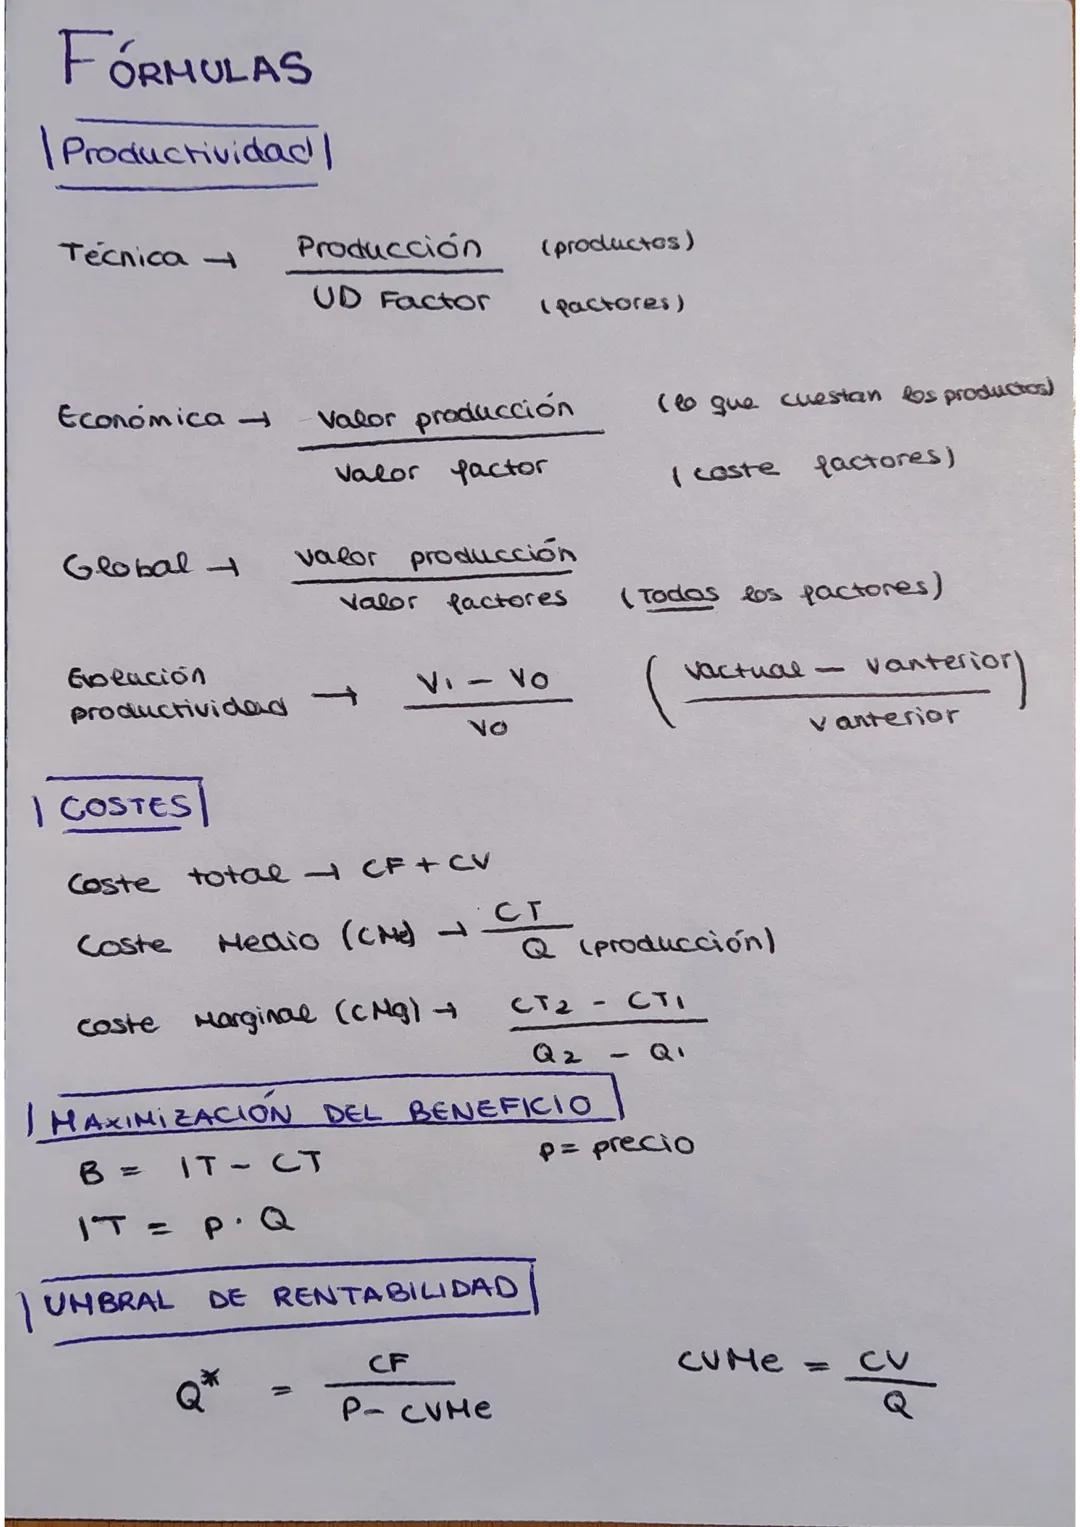 FÓRMULAS
Productividad
Técnica → Producción (productos)
UD Factor (factores)
Económica → Valor producción (lo que cuestan los productos)
Valor factor (coste factores)
Global → Valor producción
Valor factores (Todos los factores)
Evolución
productividad → V1 - V0 ( Vactual - Vanterior )
V0 Vanterior
COSTES
Coste total → CF + CV
Coste Medio (CMe) → CT
Q (producción)
Coste Marginal (CMg) → CT2 - CT1
Q2 - Q1
MAXIMIZACIÓN DEL BENEFICIO
B = IT - CT p = precio
IT = p · Q
UMBRAL DE RENTABILIDAD
Q* = CF CVMe = CV
P - CVMe Q